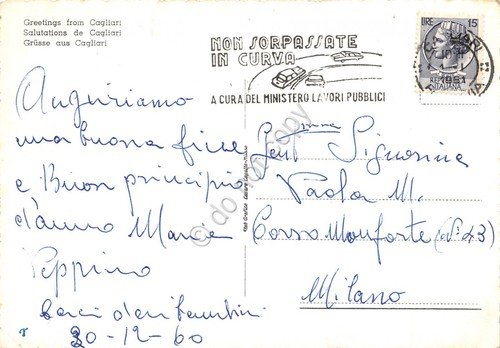 Greetings from Cagliari
Salutations de Cagliari
Grüsse aus Cagliari
NON SORPASSATE
IN CURVA
A CURA DEL MINISTERO LAVORI PUBBLICI
LIRE 15
ITALIANA
Auguriamo
una buona fine
e Buon principio
d'anno Maria
Peppino
baci dai bambini
30-12-60
Gent.ma Signorina
Paola M.
Corso Monforte (N° 43)
Milano
© do not copy